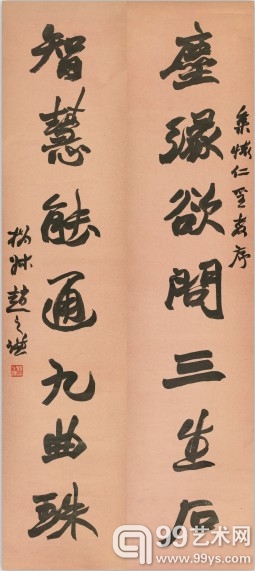 集懷仁聖教序
塵緣欲問三生石
智慧能通九曲珠
撝叔趙之謙
99艺术网
www.99ys.com